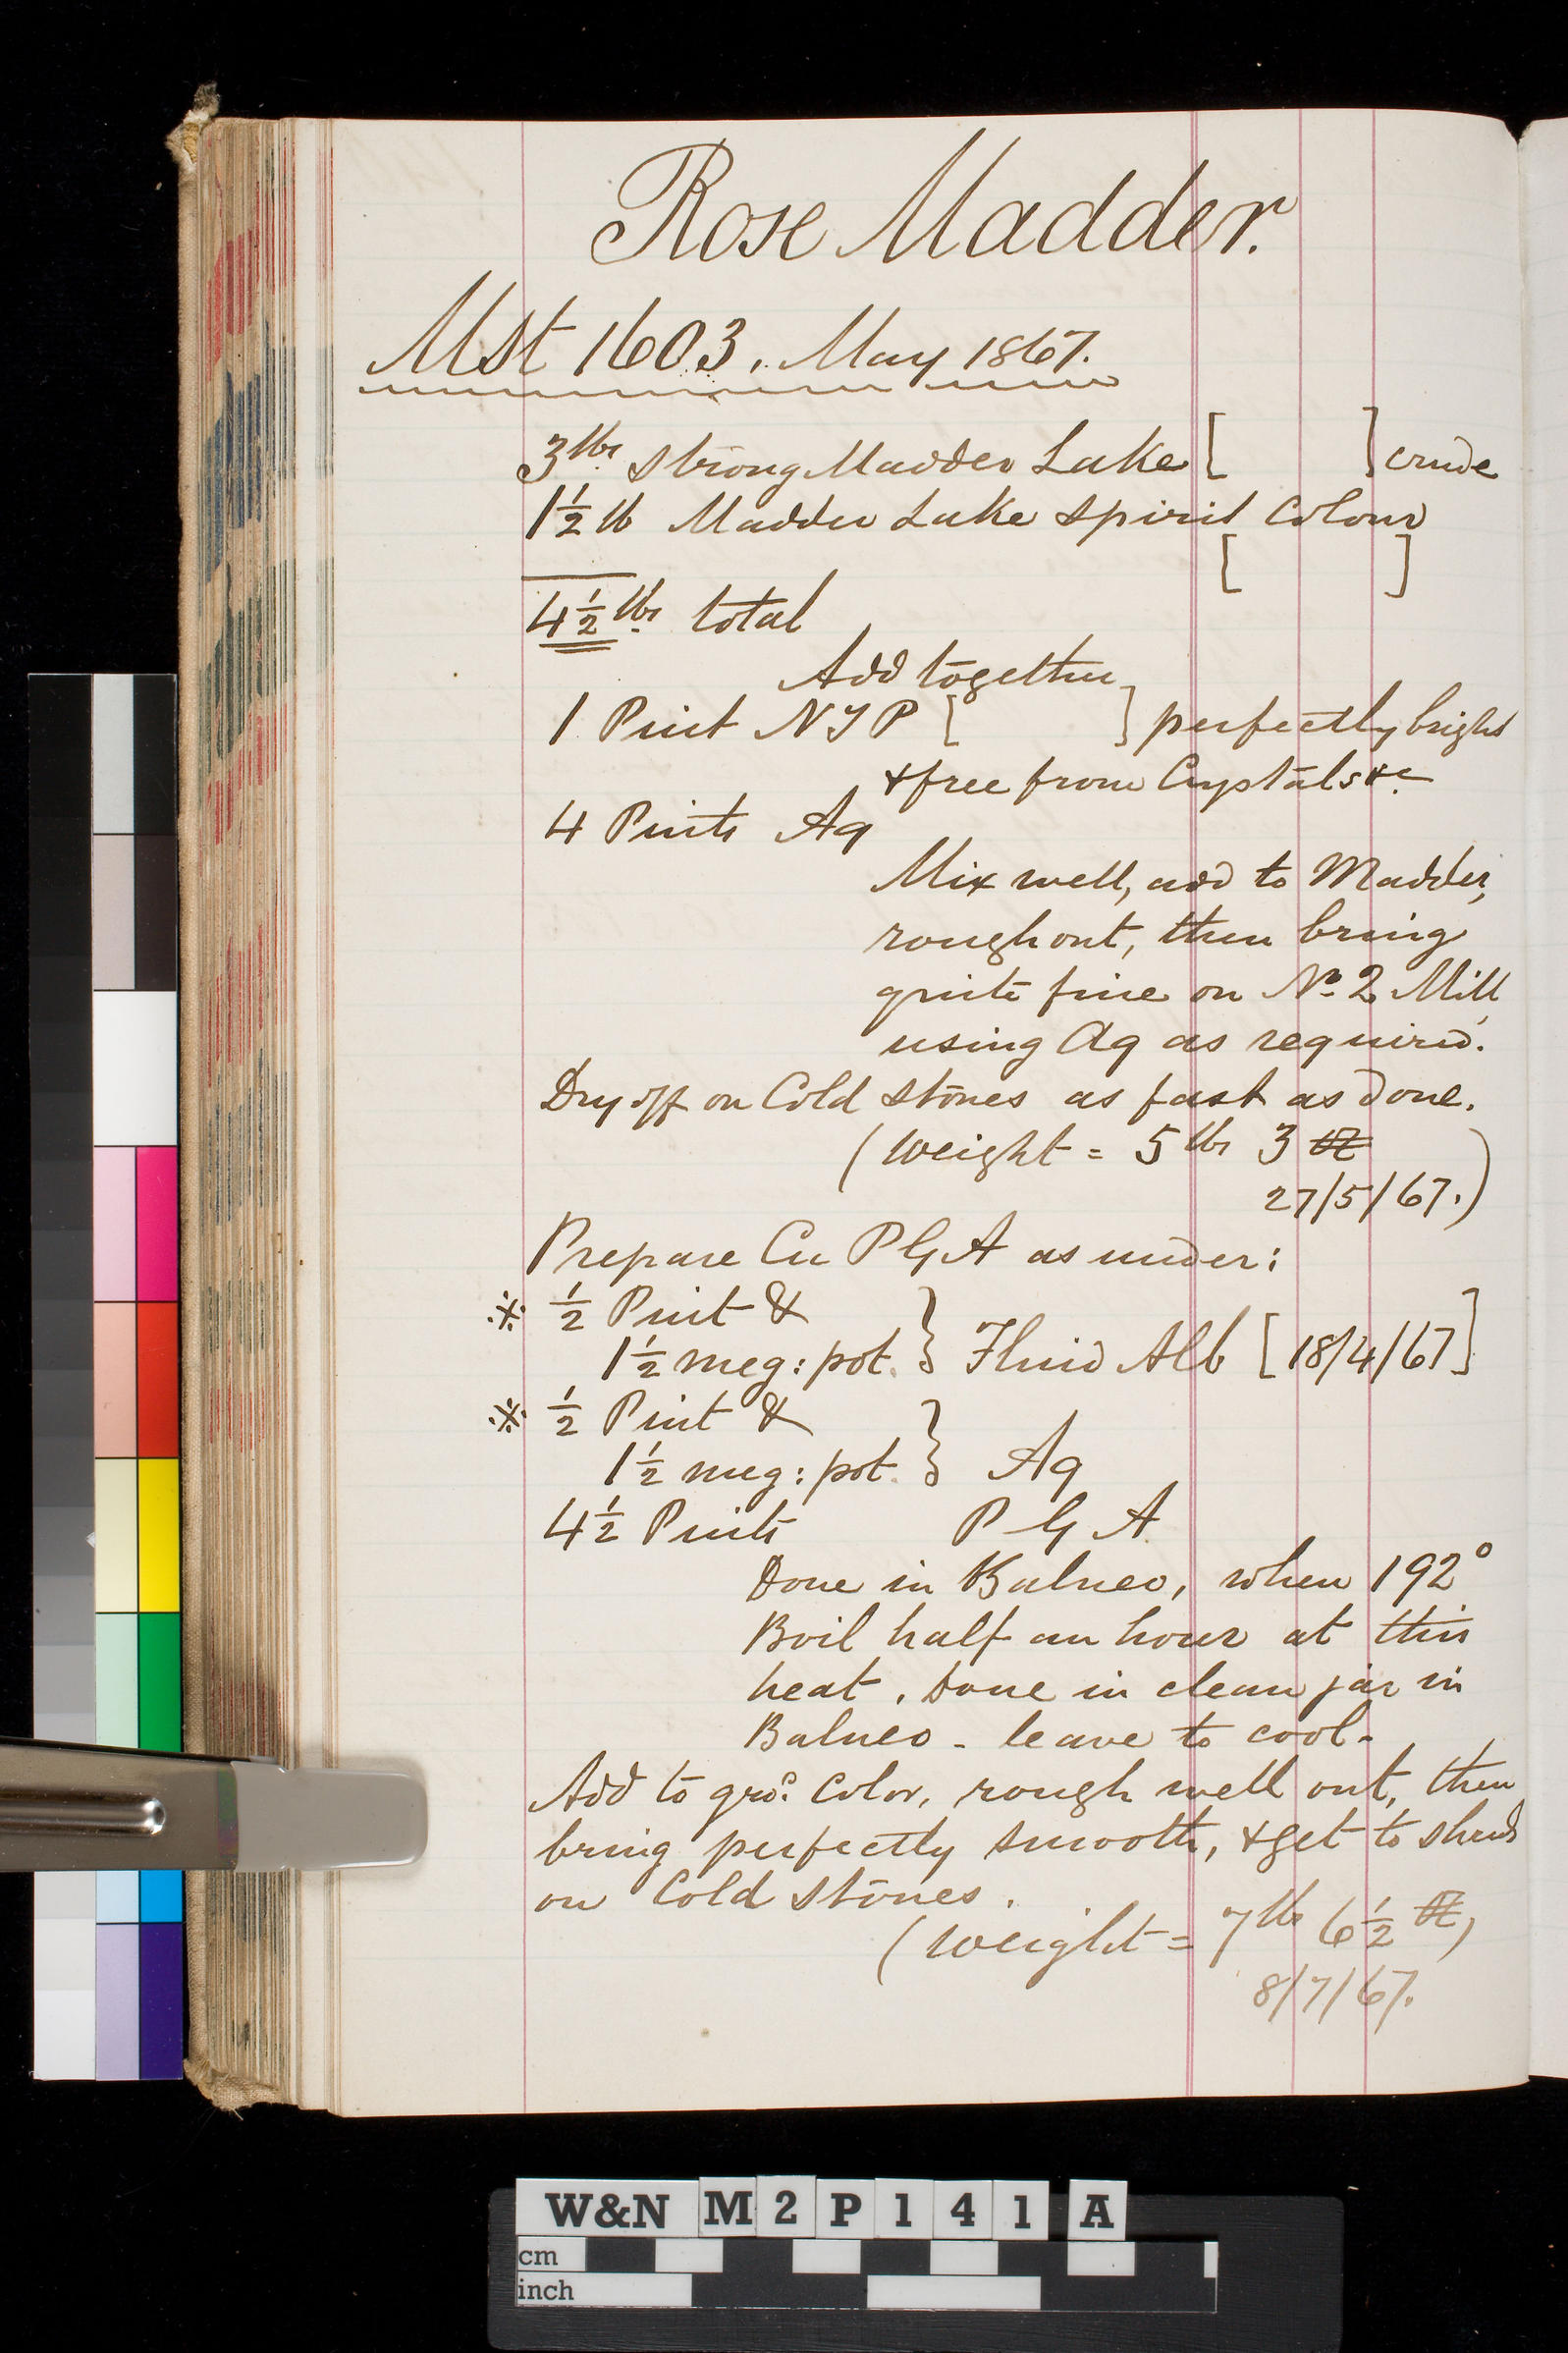 Rose Madder.
Mst 1603. May 1867.
3 lbs strong Madder Lake [ ] crude
1½ lb Madder Lake spirit Colour
[ ]
4½ lbs total
Add together
1 Pint NSP [ ] perfectly bright
& free from Crystals &c
4 Pints Aq
Mix well, add to Madder,
rough out, then bring
quite fine on No. 2 Mill,
using Aq as required.
Dry off on Cold stones as fast as done.
(Weight = 5 lbs 3 oz
27/5/67.)
Prepare Cu P G A as under:
※ ½ Pint &
1½ meg: pot. } Fluid Alb [18/4/67]
※ ½ Pint &
1½ meg: pot. } Aq
4½ Pints P G A
Done in Balneo, when 192°
Boil half an hour at this
heat. Done in clean jar in
Balneo - leave to cool.
Add to grod. Color, rough well out, then
bring perfectly smooth, & get to shreds
on Cold stones.
(Weight = 7 lbs 6½ oz)
8/7/67.
W&N M2P141A
cm
inch